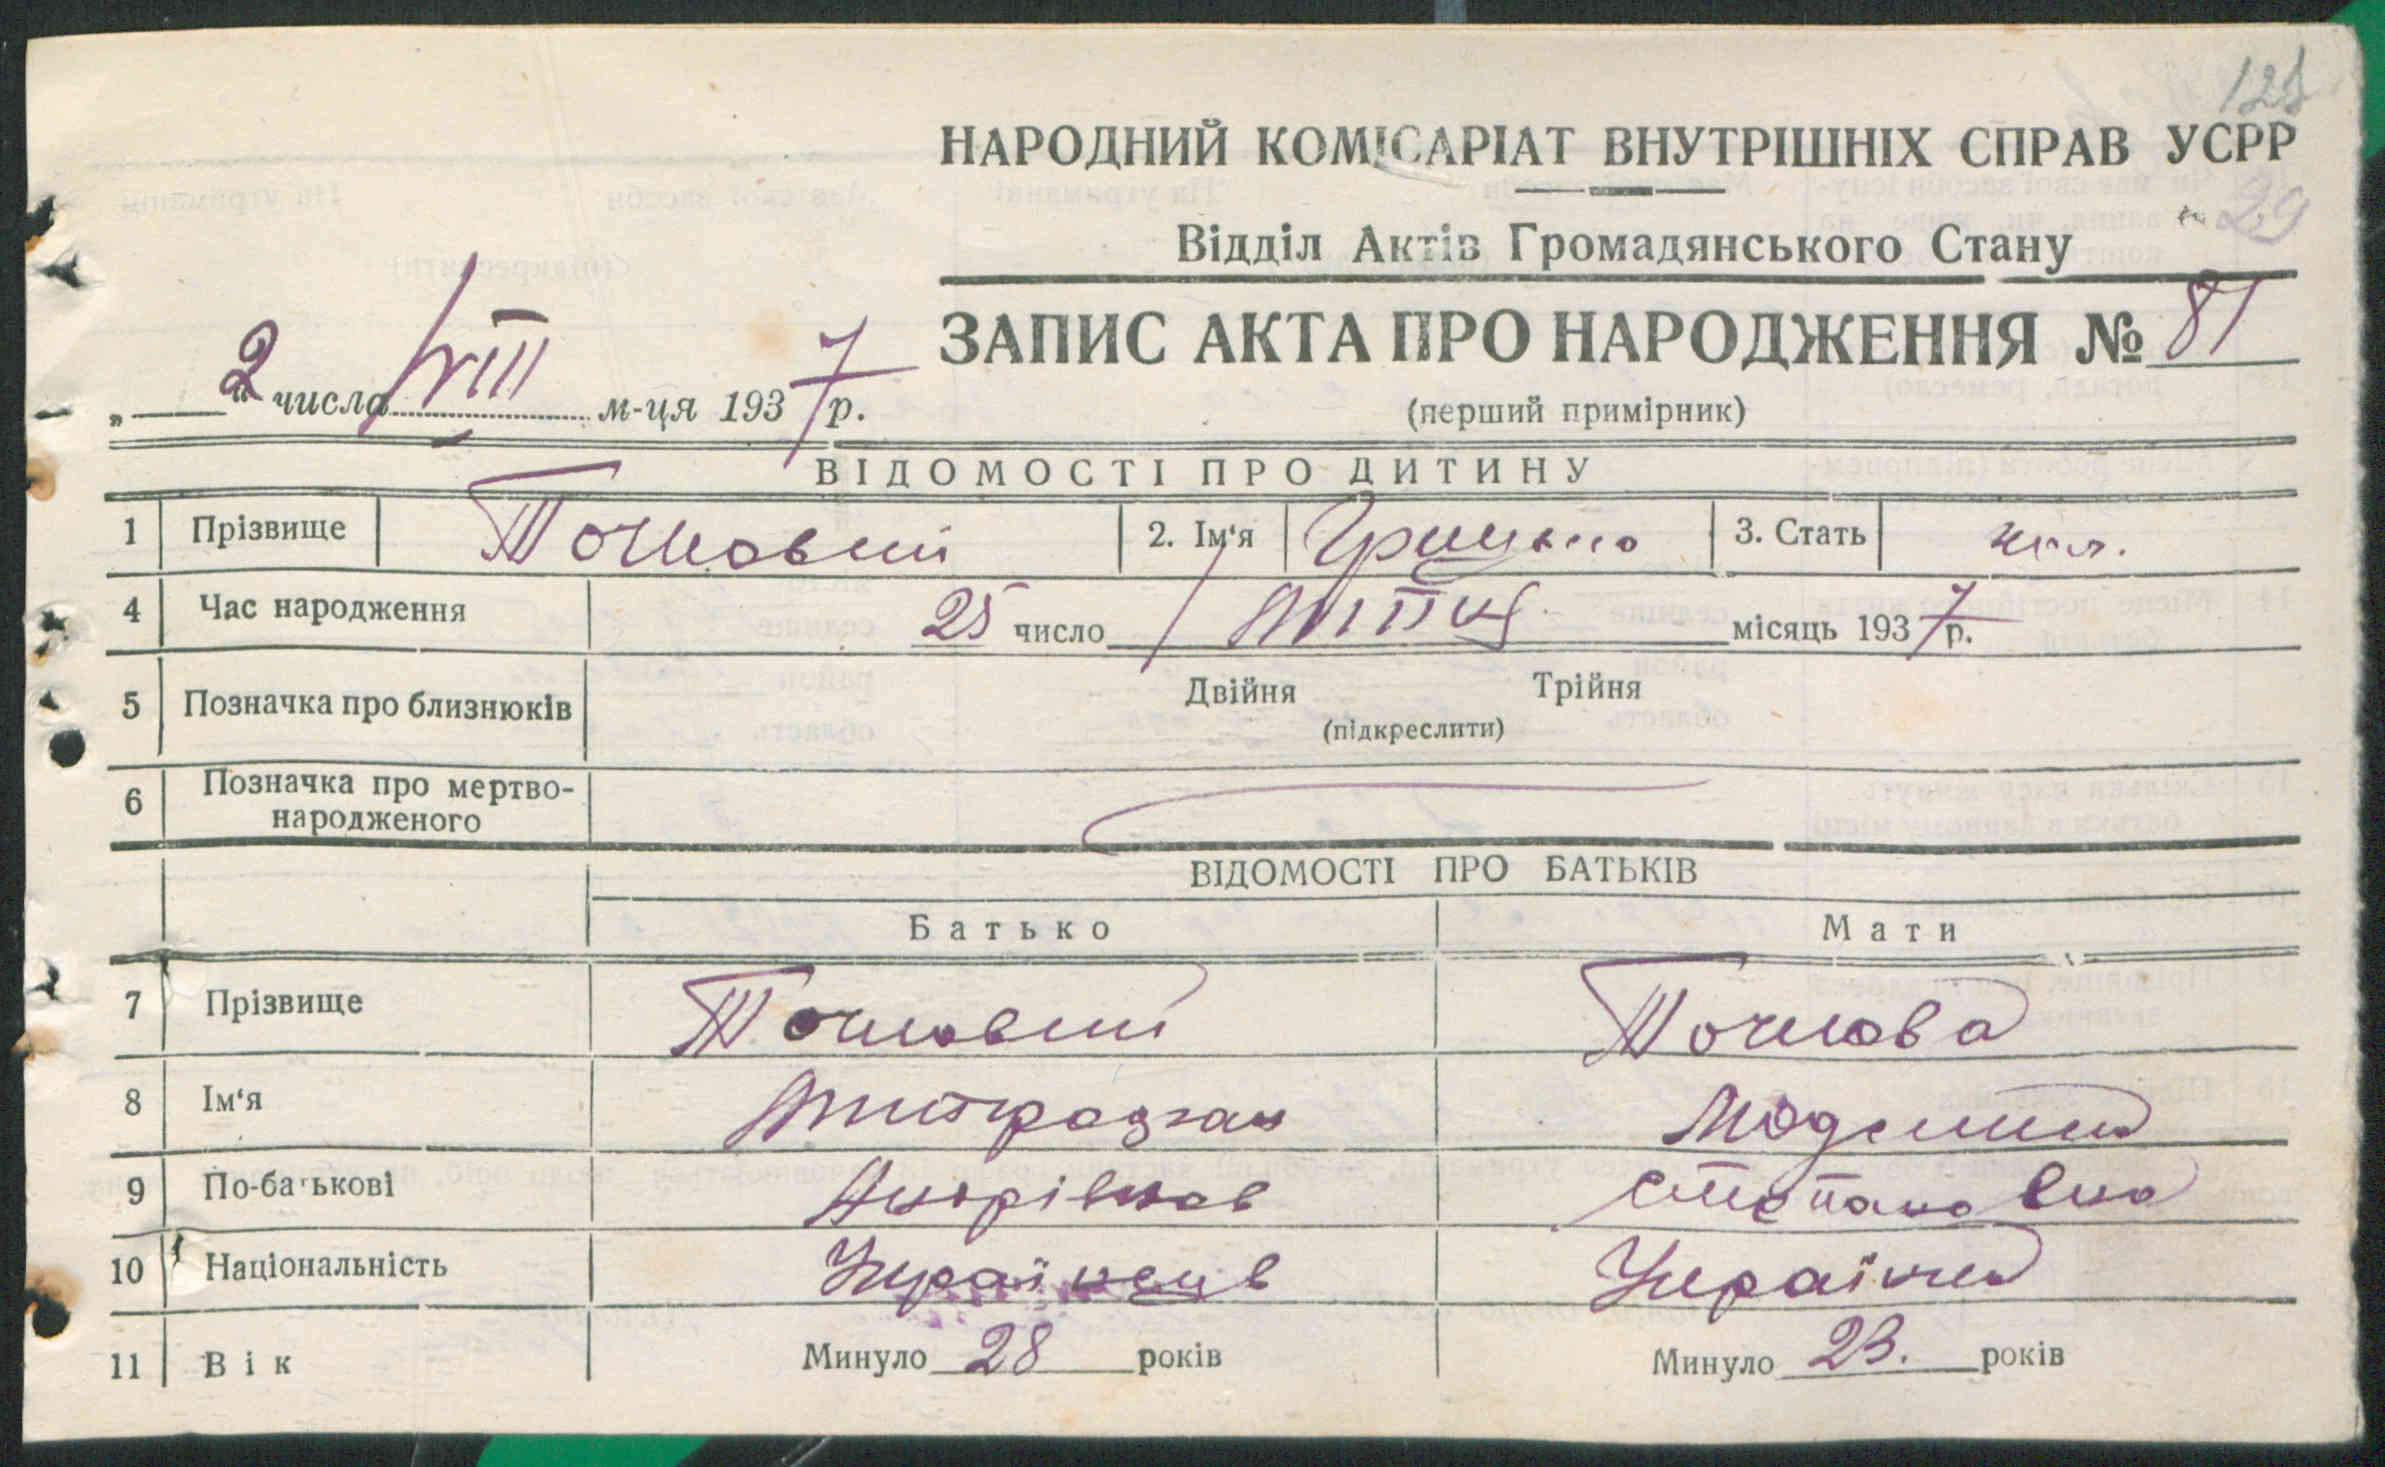 128
НАРОДНИЙ КОМІСАРІАТ ВНУТРІШНІХ СПРАВ УСРР
29
Відділ Актів Громадянського Стану
ЗАПИС АКТА ПРО НАРОДЖЕННЯ № 81
„2“ числа VIII м-ця 1937 р.
(перший примірник)
ВІДОМОСТІ ПРО ДИТИНУ
1 Прізвище Точковий 2. Ім'я Грицько 3. Стать чол.
4 Час народження 25 число липня місяць 1937 р.
5 Позначка про близнюків Двійня Трійня
(підкреслити)
6 Позначка про мертво-
народженого
ВІДОМОСТІ ПРО БАТЬКІВ
Батько Мати
7 Прізвище Точковий Точкова
8 Ім'я Митрофан
9 По-батькові Андрійов Степановна
10 Національність Українець Українка
11 Вік Минуло 28 років Минуло 23. років